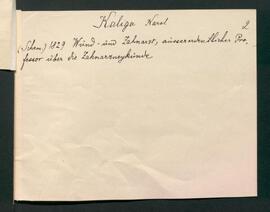 Kaliga Karel
2
(Schem.) 1829 Wund- und Zahnarzt, ausserordentlicher Pro-
fessor über die Zahnarzneykunde